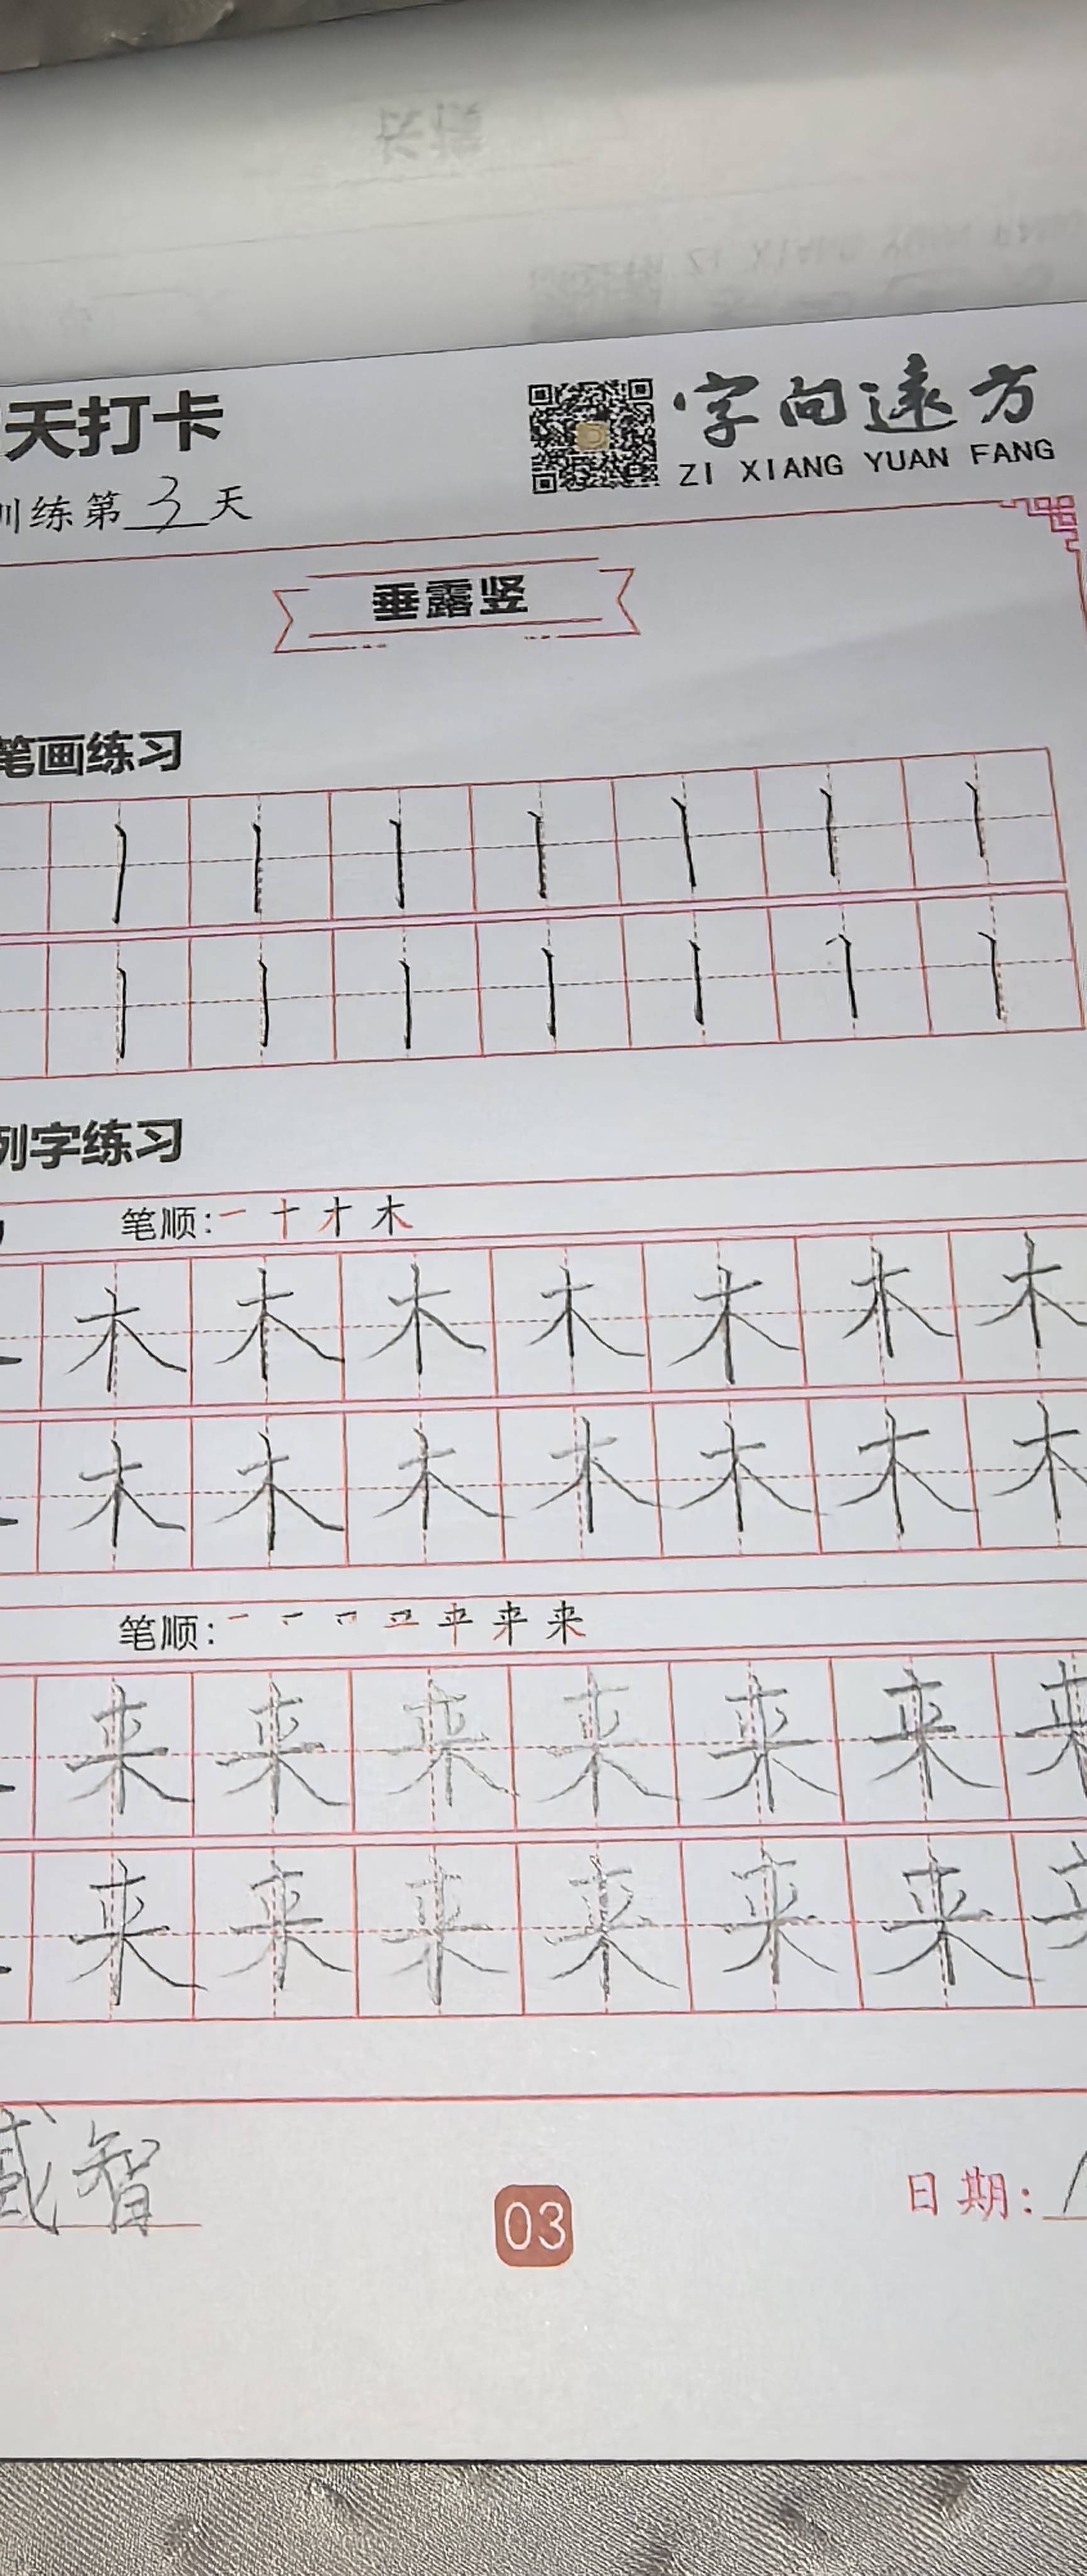 天打卡
字向遠方
ZI XIANG YUAN FANG
训练第3天
垂露竖
笔画练习
丨 丨 丨 丨 丨 丨 丨
丨 丨 丨 丨 丨 丨 丨
例字练习
笔顺: 一 十 才 木
木 木 木 木 木 木 木
木 木 木 木 木 木 木
笔顺:
来
来 来 来 来 来 来 来
来 来 来 来 来 来
智
03
日期: